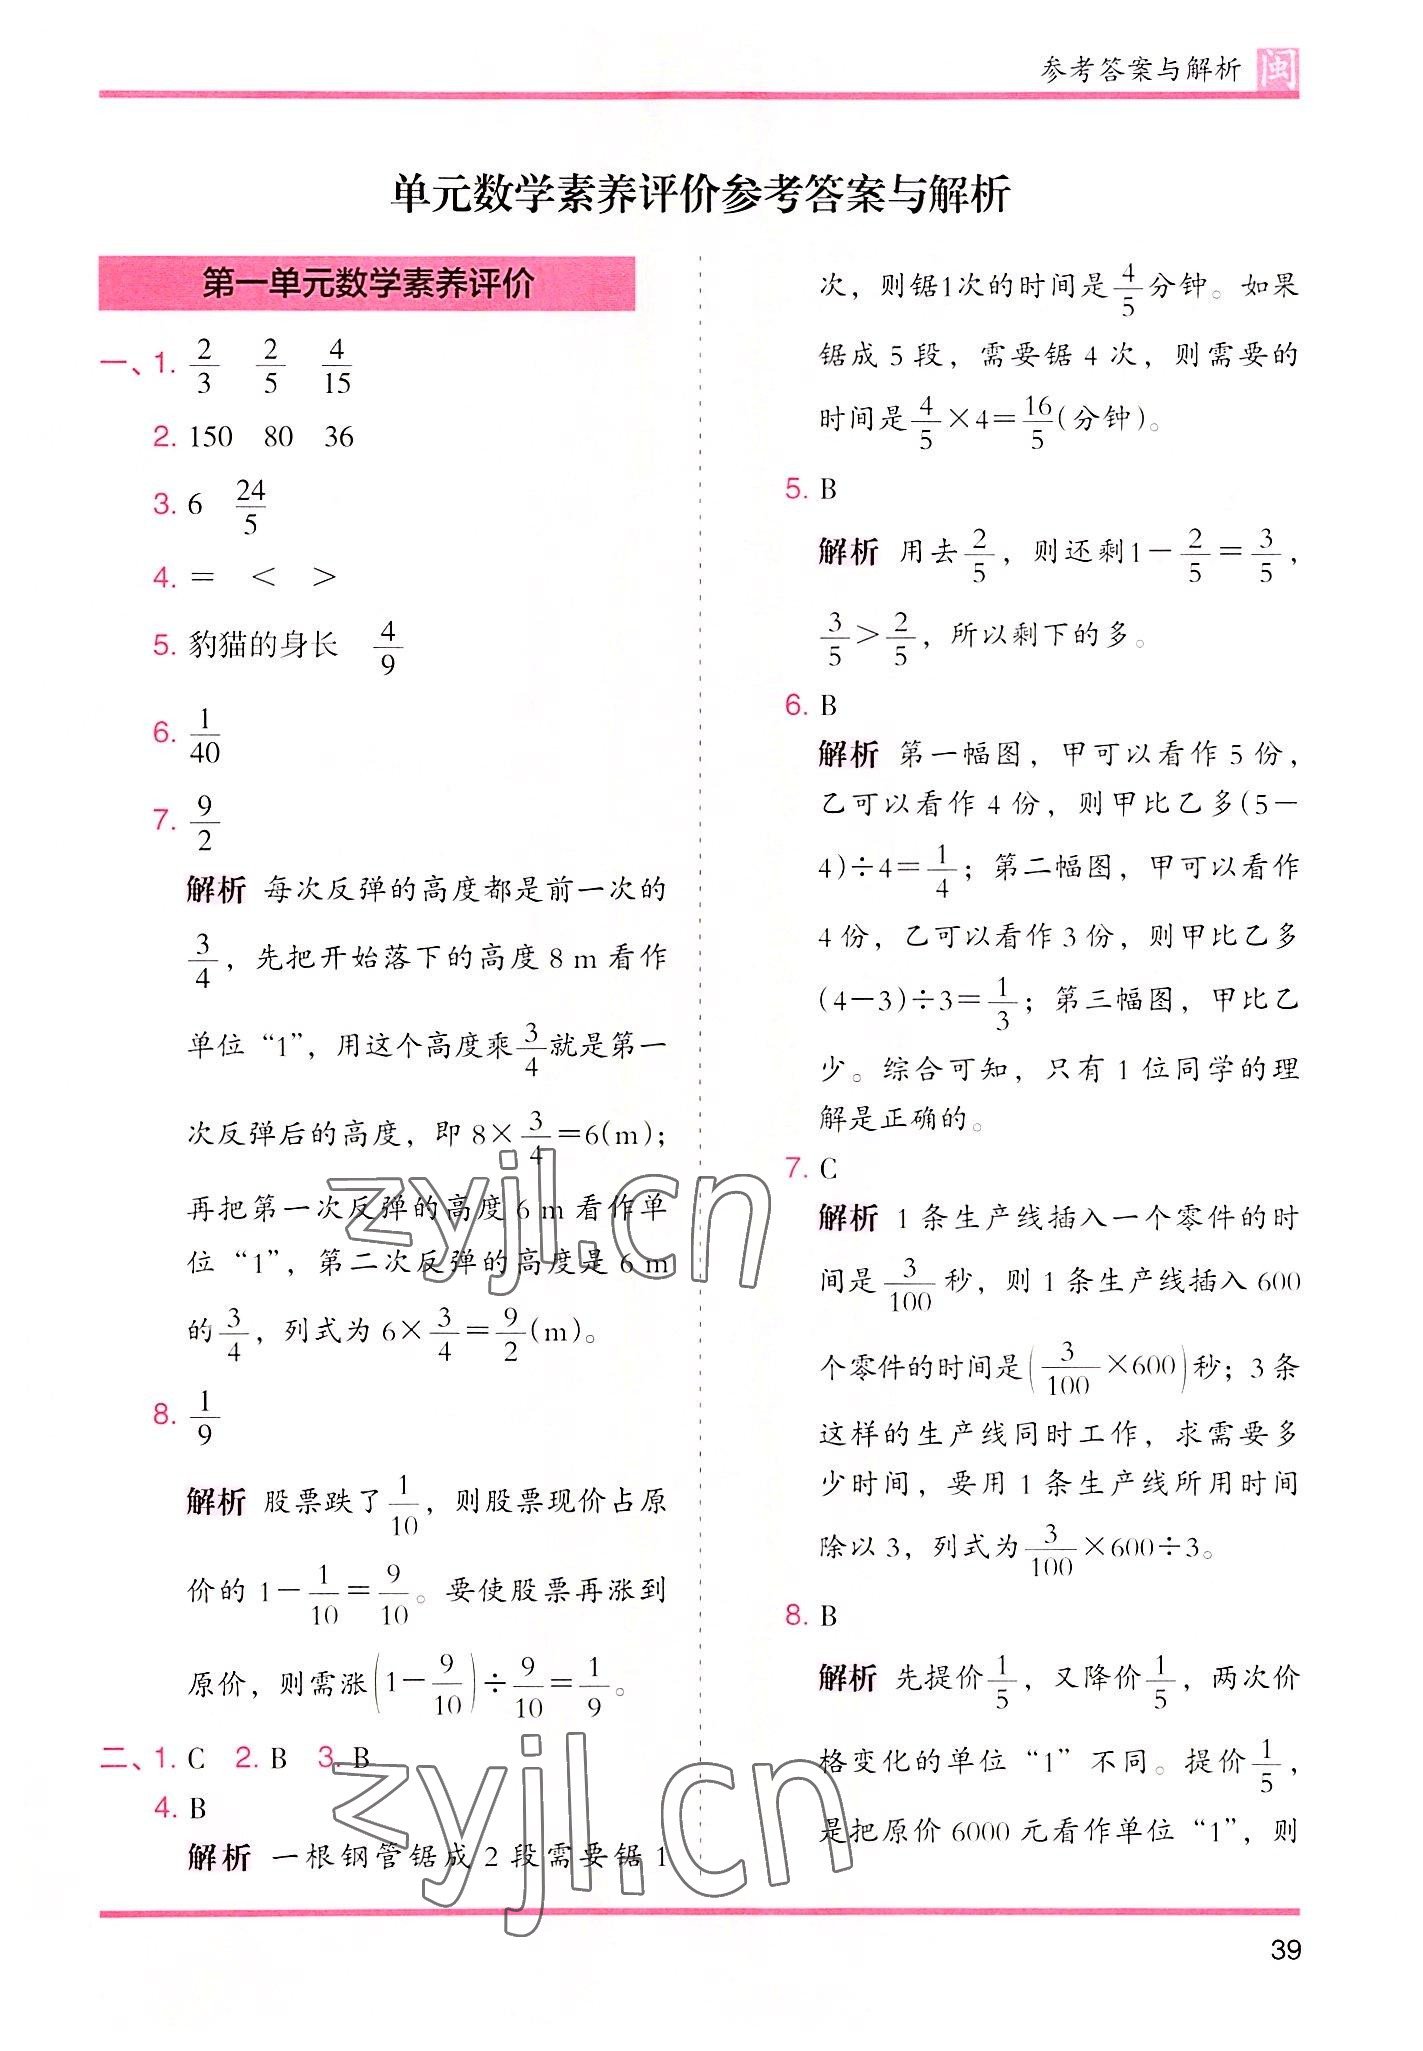 参考答案与解析 闽
单元数学素养评价参考答案与解析
第一单元数学素养评价
一、1. 2/3 2/5 4/15
2. 150 80 36
3. 6 24/5
4. = < >
5. 豹猫的身长 4/9
6. 1/40
7. 9/2
解析 每次反弹的高度都是前一次的
3/4，先把开始落下的高度 8 m 看作
单位“1”，用这个高度乘3/4就是第一
次反弹后的高度，即 8×3/4=6(m)；
再把第一次反弹的高度 6 m 看作单
位“1”，第二次反弹的高度是 6 m
的3/4，列式为 6×3/4=9/2(m)。
8. 1/9
解析 股票跌了1/10，则股票现价占原
价的 1-1/10=9/10。要使股票再涨到
原价，则需涨(1-9/10)÷9/10=1/9。
二、1. C 2. B 3. B
4. B
解析 一根钢管锯成 2 段需要锯 1
次，则锯1次的时间是4/5分钟。如果
锯成 5 段，需要锯 4 次，则需要的
时间是4/5×4=16/5(分钟)。
5. B
解析 用去2/5，则还剩1-2/5=3/5，
3/5>2/5，所以剩下的多。
6. B
解析 第一幅图，甲可以看作 5 份，
乙可以看作 4 份，则甲比乙多(5-
4)÷4=1/4；第二幅图，甲可以看作
4 份，乙可以看作 3 份，则甲比乙多
(4-3)÷3=1/3；第三幅图，甲比乙
少。综合可知，只有 1 位同学的理
解是正确的。
7. C
解析 1 条生产线插入一个零件的时
间是3/100秒，则 1 条生产线插入 600
个零件的时间是(3/100×600)秒；3 条
这样的生产线同时工作，求需要多
少时间，要用 1 条生产线所用时间
除以 3，列式为3/100×600÷3。
8. B
解析 先提价1/5，又降价1/5，两次价
格变化的单位“1”不同。提价1/5，
是把原价 6000 元看作单位“1”，则
39
zyjl.cn
zyjl.cn